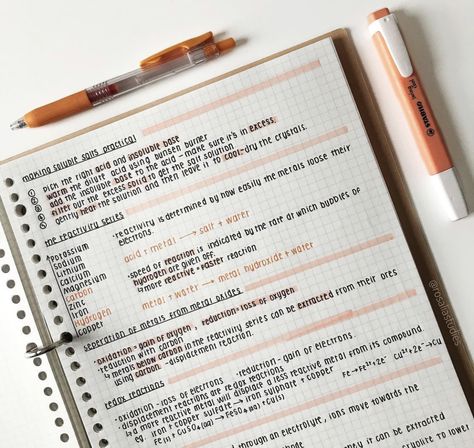 making soluble salts practical
① pick the right acid and insoluble base
② warm the dilute acid using bunsen burner
③ add the insoluble base to the acid - make sure it's in excess.
④ filter out the excess solid to get the salt solution
gently heat the solution and then leave it to cool + dry the crystals.
the reactivity series
potassium
sodium
lithium
calcium
magnesium
carbon
zinc
iron
hydrogen
copper
·reactivity is determined by how easily the metals loose their electrons.
acid + metal → salt + water
·speed of reaction is indicated by the rate at which bubbles of
hydrogen are given off.
↳ more reactive = faster reaction
metal + water → metal hydroxide + water
seperation of metals from metal oxides
·oxidation = gain of oxygen , reduction = loss of oxygen
·reduction with carbon
↳ metals below carbon in the reactivity series can be extracted from their ores
using carbon - displacement reaction.
redox reactions
·oxidation - loss of electrons ·reduction - gain of electrons
·displacement reactions are redox reactions.
↳ a more reactive metal will displace a less reactive metal from its compound.
eg. iron + copper sulfate → iron sulphate + copper
Fe(s) + CuSO4(aq) → FeSO4(aq) + Cu(s)
Fe → Fe²⁺ + 2e⁻ Cu²⁺ + 2e⁻ → Cu
through an electrolyte, ions move towards the
can be extracted
to lower
STABILO
swing cool
@rosaliastudies